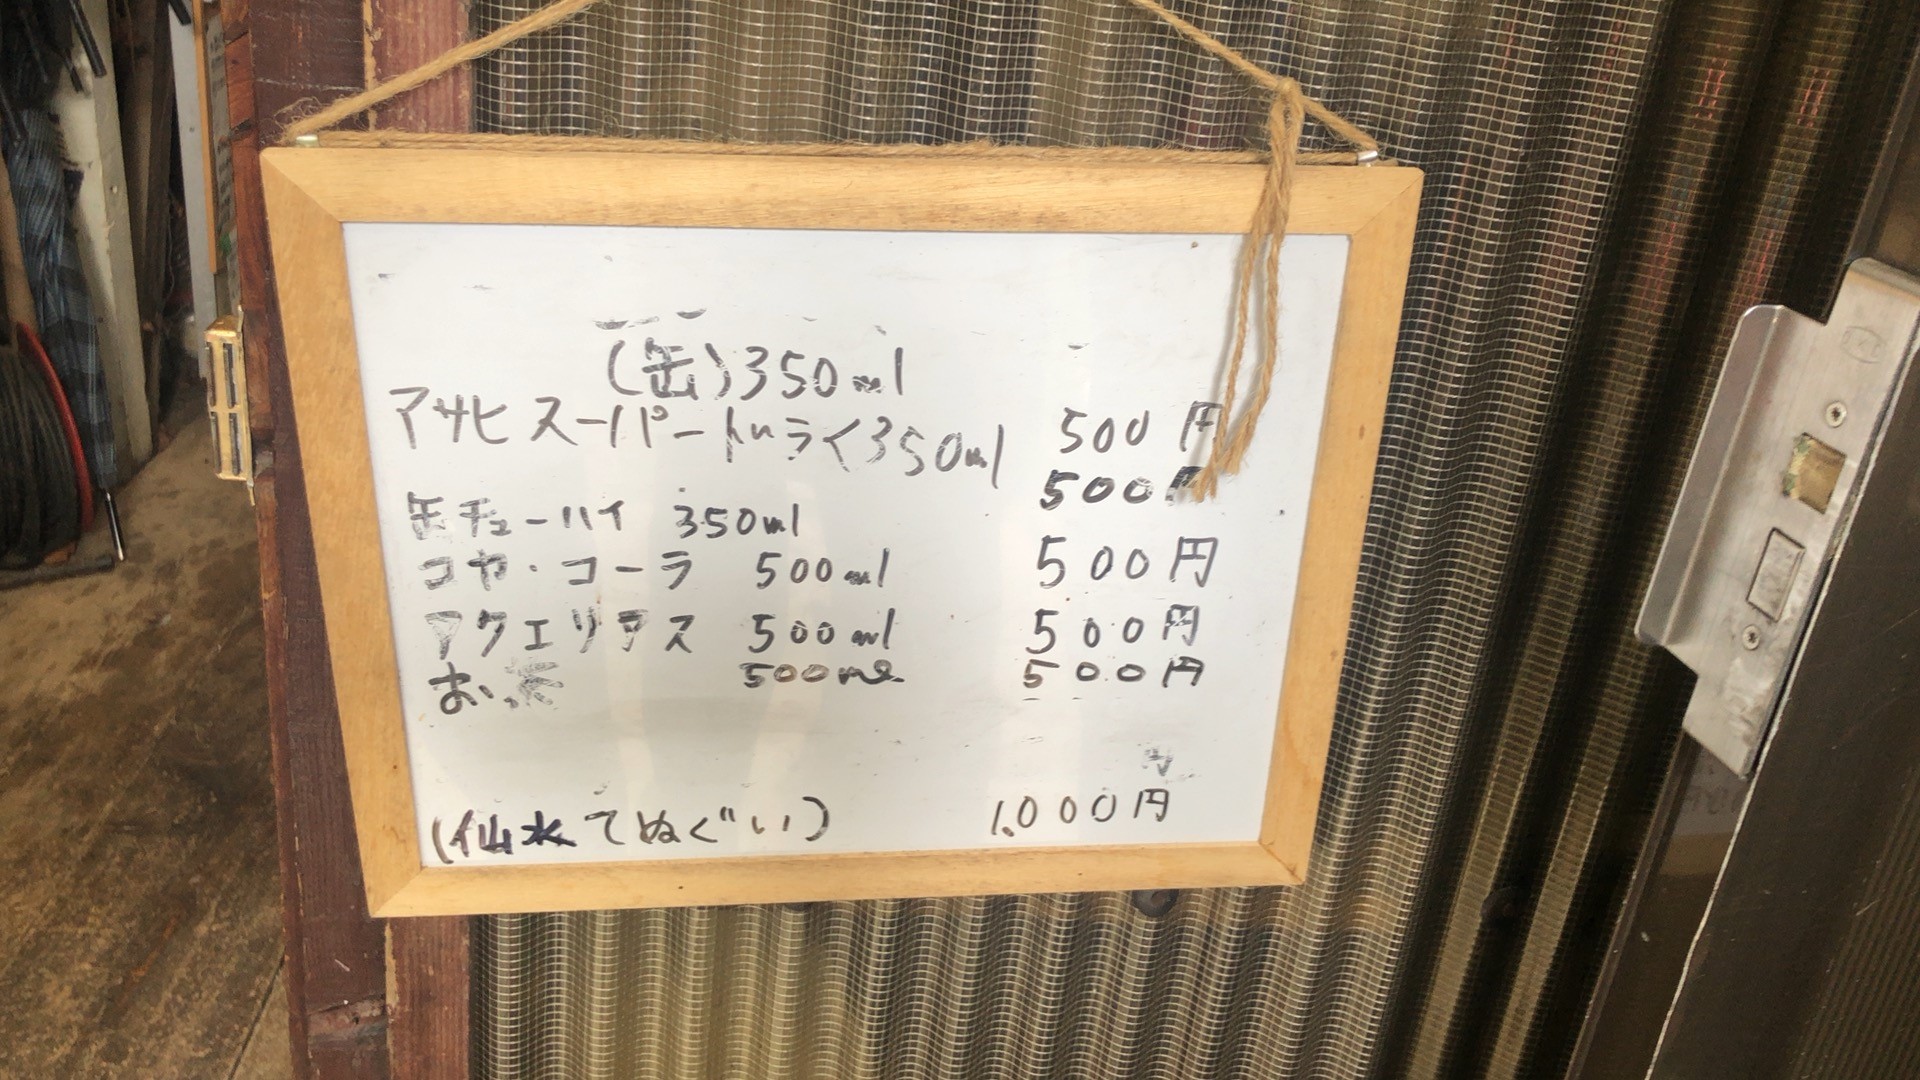 (缶)350ml
アサヒスーパードライ350ml 500円
缶チューハイ 350ml 500円
コカ・コーラ 500ml 500円
アクエリアス 500ml 500円
お茶 500ml 500円
円
(仙水てぬぐい) 1.000円